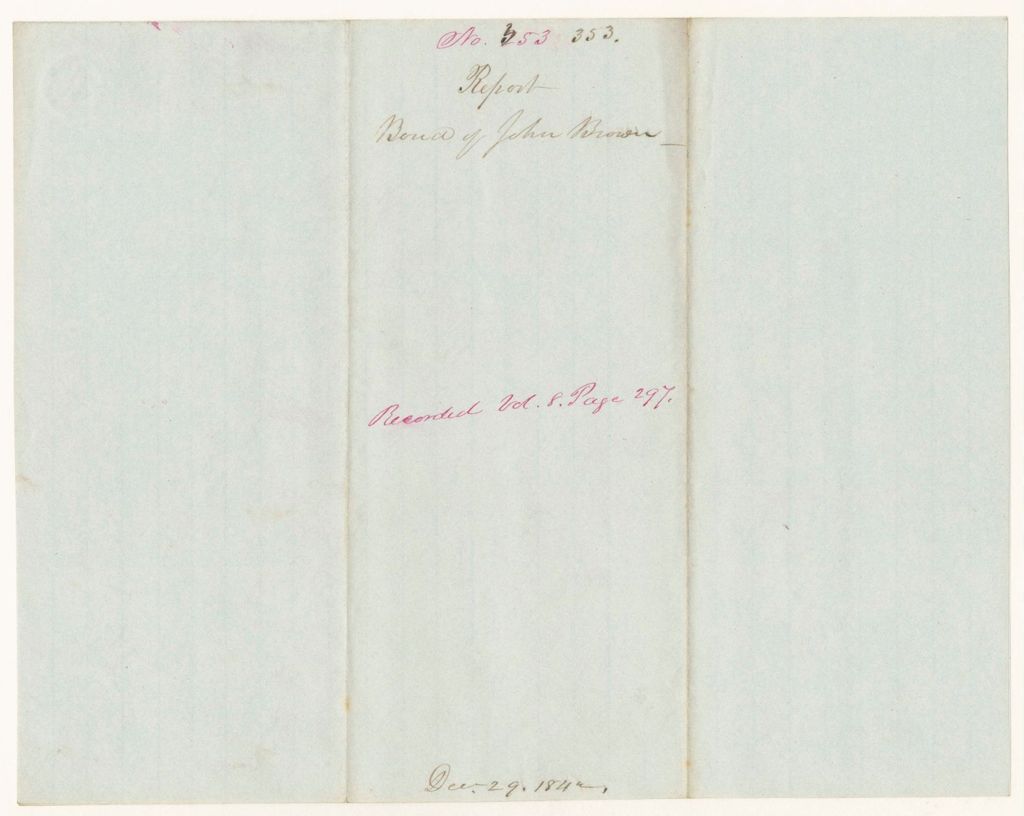 No. 353 353.
Report
Bond of John Brown
Recorded Vol. 8. Page 297.
Dec. 29. 1842.